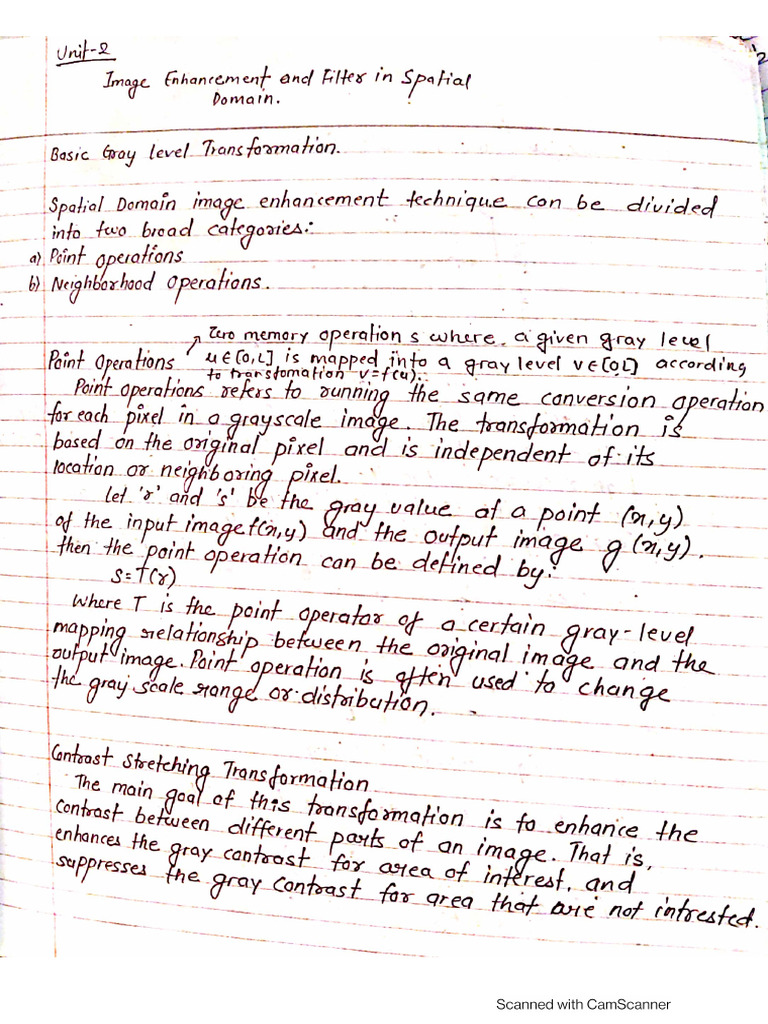 Unit-2
Image Enhancement and Filter in Spatial
Domain.
Basic Gray level Transformation.
Spatial Domain image enhancement technique can be divided
into two broad categories:
a) Point operations
b) Neighborhood Operations.
Zero memory operations where a given gray level
Point Operations u∈[0,L] is mapped into a gray level v∈[0L] according
to transtomation v=f(u).
Point operations refers to running the same conversion operation
for each pixel in a grayscale image. The transformation is
based on the original pixel and is independent of its
location or neighboring pixel.
let 'r' and 's' be the gray value at a point (x,y)
of the input image f(x,y) and the output image g(x,y).
then the point operation can be defined by:
S=T(r)
Where T is the point operator of a certain gray-level
mapping relationship between the original image and the
output image. Point operation is often used to change
the gray scale range or distribution.
Contrast Stretching Transformation
The main goal of this transformation is to enhance the
contrast between different parts of an image. That is,
enhances the gray contrast for area of interest, and
suppresses the gray contrast for area that are not intrested.
Scanned with CamScanner